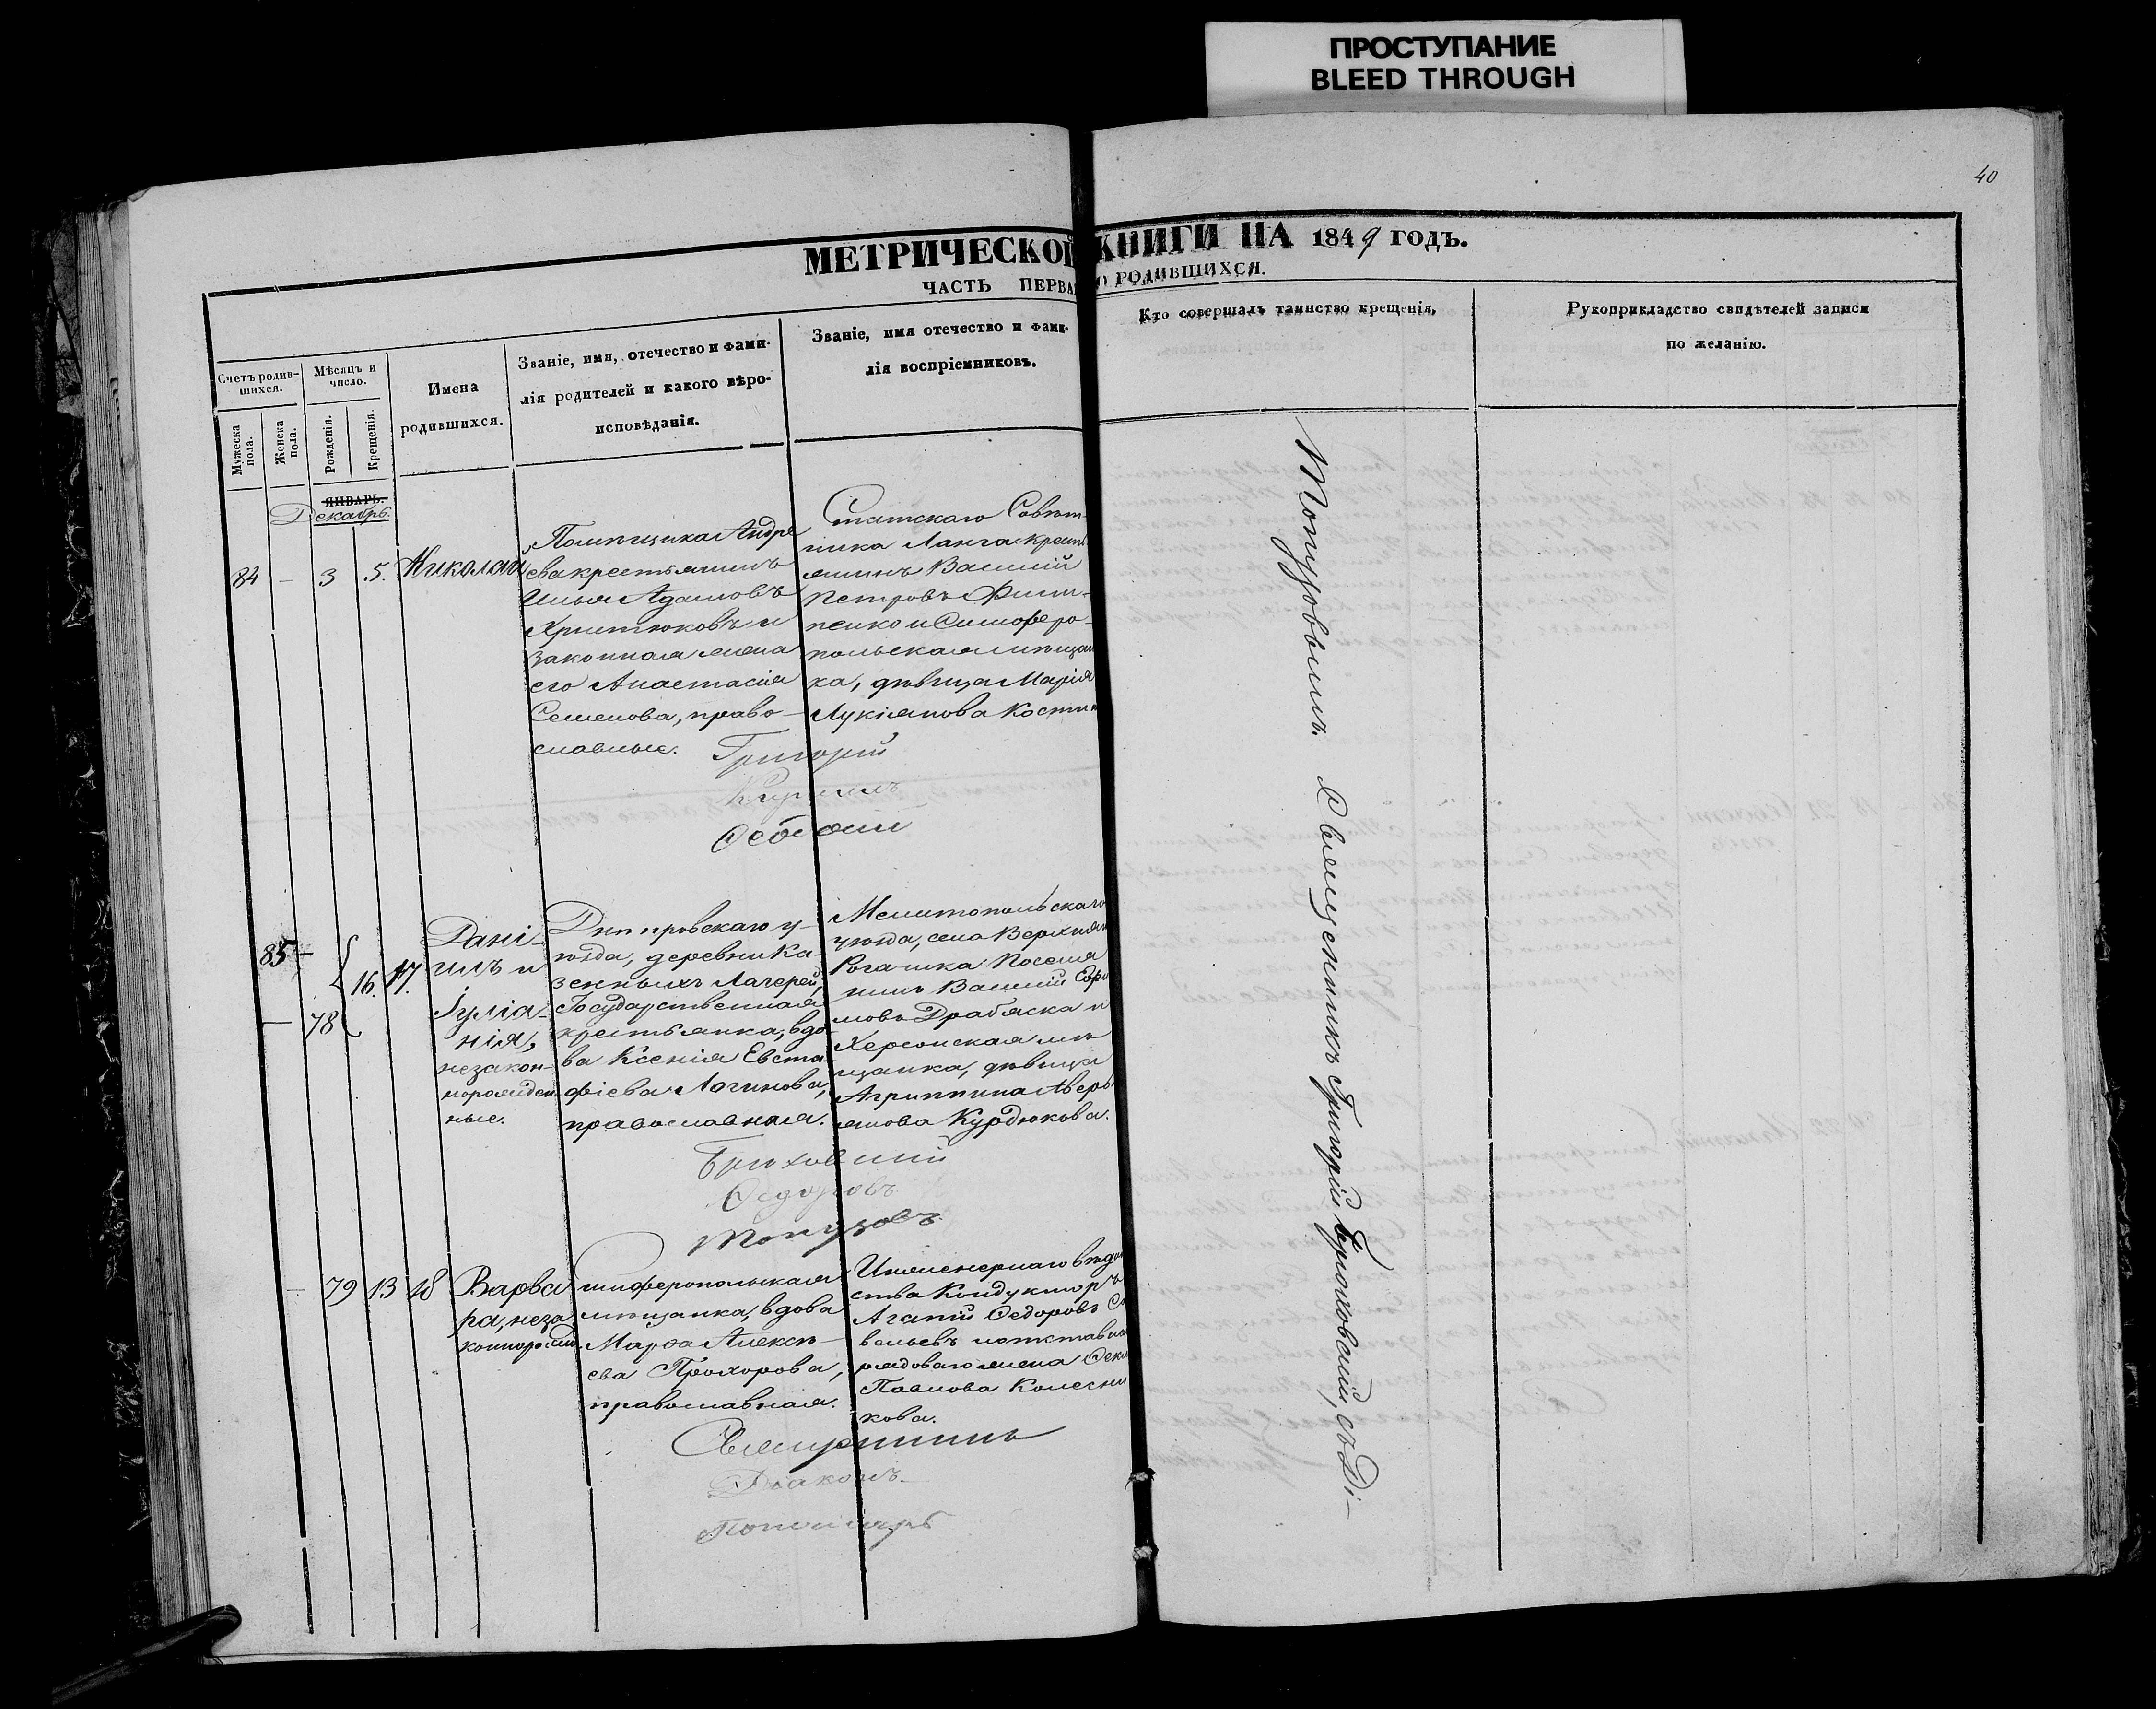 ПРОСТУПАНИЕ
BLEED THROUGH
40
МЕТРИЧЕСКОЙ КНИГИ НА 1849 ГОДЪ.
ЧАСТЬ ПЕРВА О РОДИВШИХСЯ.
Счетъ родив-
шихся.
Мужеска
пола.
Женска
пола.
Мѣсяцъ и
число.
Рожденія.
Крещенія.
Имена
родившихся.
Званіе, имя, отечество и фами-
лія родителей и какого вѣро-
исповѣданія.
Званіе, имя отечество и фами-
лія воспріемниковъ.
Кто совершалъ таинство крещенія,
Рукоприкладство свидѣтелей записи
по желанію.
ЯНВАРЬ.
Декабрь.
84 — 3 5. Николай
Помѣщика Андре
ева крестьянинъ
Илья Адамовъ
Христюковъ и
законная жена
его Анастасія
Семенова, право-
славные.
Статскаго Совѣт-
ника Ланга крест
янинъ Василій
Петровъ Филип-
пенко и Симферо-
польская мѣщан
ка, дѣвица Марія
Лукіянова Костин
Григорій
Кириллъ
85 —
— 78
16. 17.
Дані-
илъ и
Іуліа-
нія,
незакон-
норожден
ные.
Днѣпровскаго у-
ѣзда, деревни Ка-
зенныхъ Лагерей,
Государственная
крестьянка, вдо
ва Ксенія Евста-
фіева Логинова,
православная.
Мелитопольскаго
уѣзда, села Верхня
Рогачика Поселя
нинъ Василій Ефи
мовъ Драбяска и
Херсонская мѣ
щанка, дѣвица
Агриппина Аверь
янова Курдюкова.
Брюховскій
Ѳедоровъ
Топузовъ
— 79 13 18
Варва
ра, неза
коннорожд
Симферопольская
мѣщанка, вдова
Марѳа Алексѣ-
ева Прохорова,
православная.
Инженернаго вѣдом
ства Кондукторъ
Агапій Ѳедоровъ Са
вельевъ и отставн
рядоваго жена Ѳекл
Павлова Колесни
кова.
Священникъ
Діаконъ
Пономарь
Священникъ Григорій Брюховскій, съ Ді-
Топузовымъ.